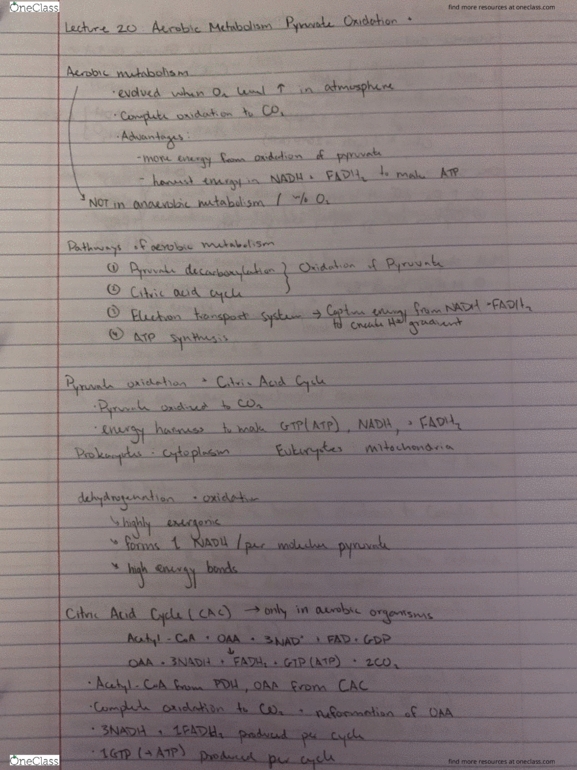 OneClass
find more resources at oneclass.com
Lecture 20 Aerobic Metabolism Pyruvate Oxidation
Aerobic metabolism
· evolved when O₂ level ↑ in atmosphere
· Complete oxidation to CO₂
· Advantages:
- more energy from oxidation of pyruvate
- harvest energy in NADH + FADH₂ to make ATP
NOT in anaerobic metabolism / w/o O₂
Pathways of aerobic metabolism
① Pyruvate decarboxylation } Oxidation of Pyruvate
② Citric acid cycle
③ Electron transport system → Capture energy from NADH + FADH₂
to create H⊕ gradient
④ ATP synthesis
Pyruvate oxidation + Citric Acid Cycle
· Pyruvate oxidized to CO₂
· energy harness to make GTP(ATP), NADH, + FADH₂
Prokaryotes: cytoplasm Eukaryotes mitochondria
dehydrogenation + oxidation
↳ highly exergonic
↘ forms 1 NADH / per molecule pyruvate
↘ high energy bonds
Citric Acid Cycle (CAC) → only in aerobic organisms
Acetyl-CoA + OAA + 3NAD⁺ + FAD + GDP
↓
OAA + 3NADH + FADH₂ + GTP(ATP) + 2CO₂
· Acetyl-CoA from PDH, OAA from CAC
· Complete oxidation to CO₂ + reformation of OAA
· 3NADH + 1FADH₂ produced per cycle
· 1GTP (→ATP) produced per cycle
OneClass
find more resources at oneclass.com